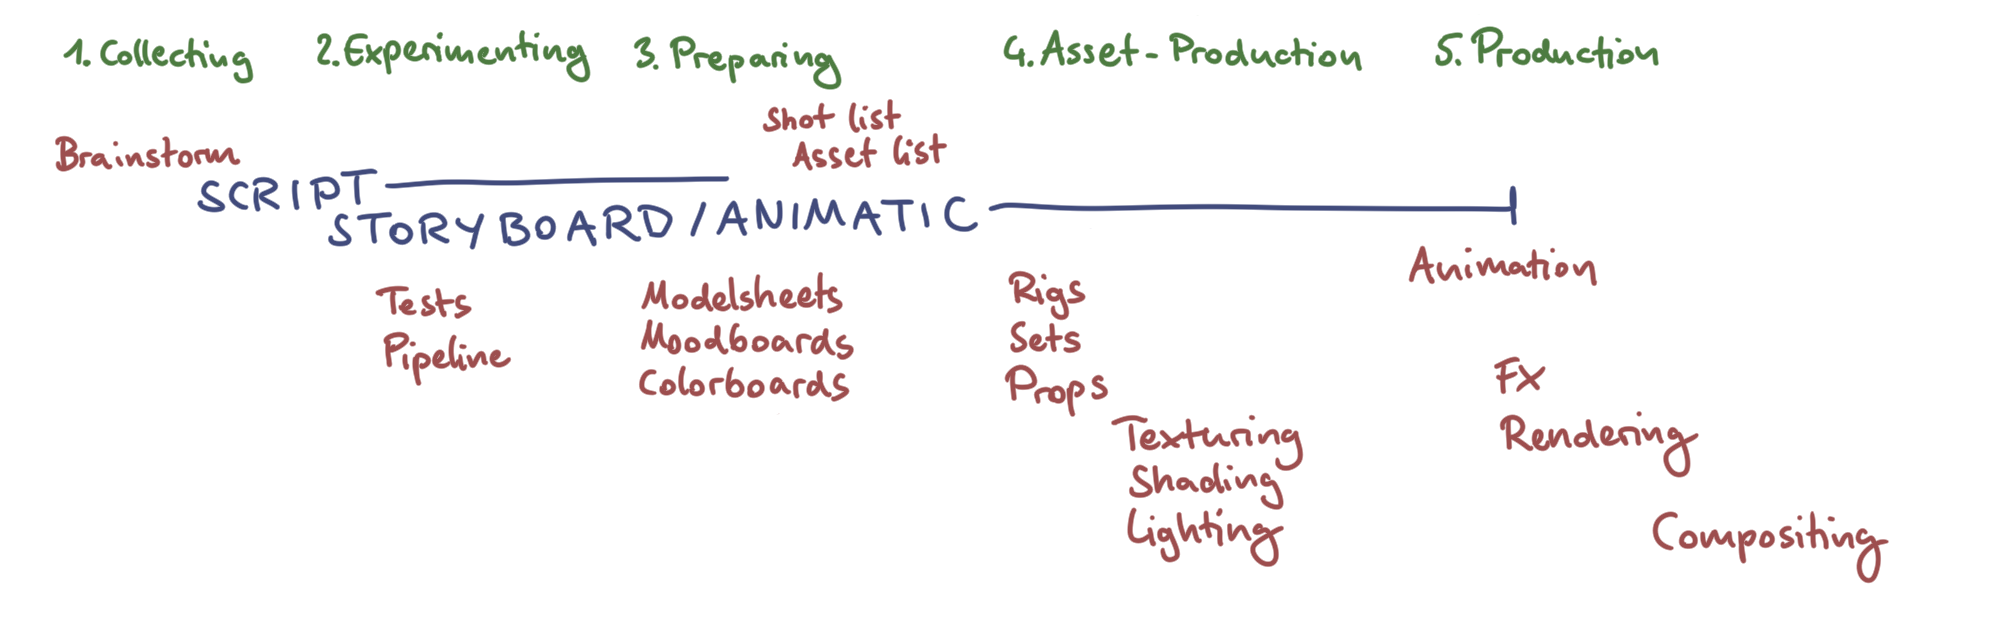 1. Collecting
2. Experimenting
3. Preparing
4. Asset-Production
5. Production
Brainstorm
Shot list
Asset list
SCRIPT
STORYBOARD / ANIMATIC
Tests
Pipeline
Modelsheets
Moodboards
Colorboards
Rigs
Sets
Props
Texturing
Shading
Lighting
Animation
FX
Rendering
Compositing